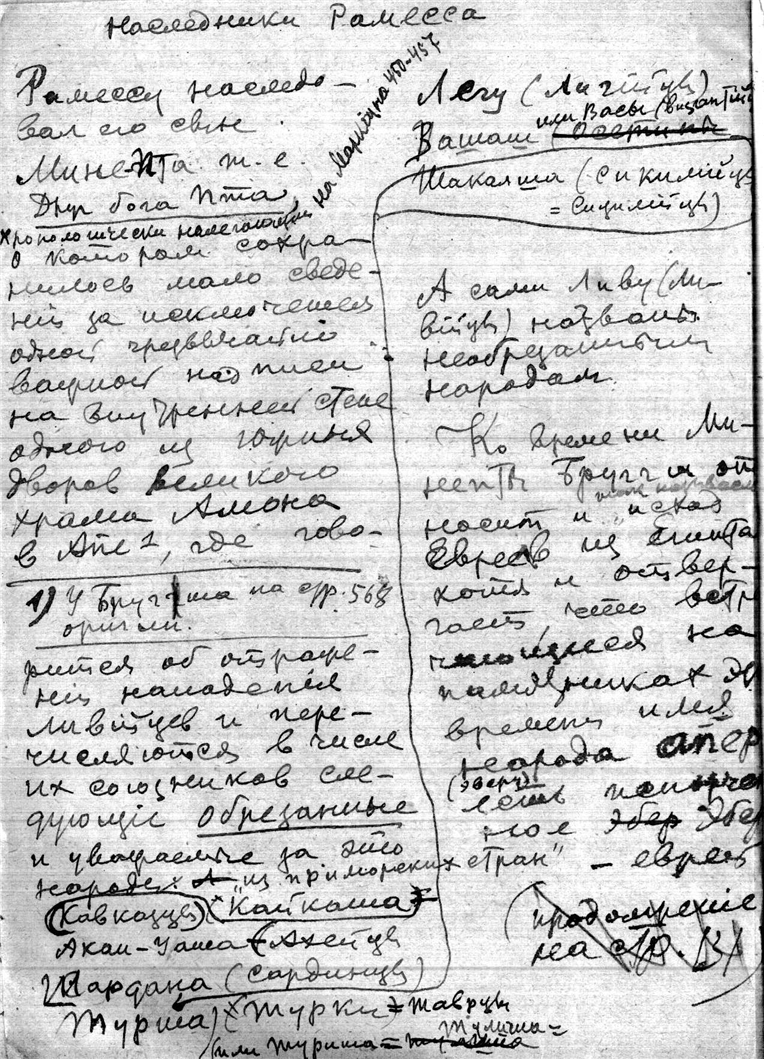 Наследники Рамесса
Рамессу наследо-
вал его сын
Минепта т. е.
Дар бога Пта,
хронологически налегающий на Маркiана 450-457
о котором сохра-
нилось мало сведе-
нiй за исключенiем
одной чрезвычайно
важной надписи
на внутренней стене
одного из
дворов великого
храма Амона
в Апе 1, где гово-
1) У Бругша на стр. 568
оригин.
рится об отраже-
нiи нападенiя
ливiйцев и пере-
числяются в числе
их союзников сле-
дующiе Обрезанные
и уважаемые за это
народы "из приморских стран"
(Кавказцы) Кайкаша
Акаи-Уаша (Ахейцы
Шардана (Сардинцы)
Турша) (Турки = Таврцы
(или Туриша =
Легу (Лигiйцы)
Вашаш или Васы
Шакалша (Сикилiйцы
= Сицилiйцы)
А сами Ливу (Ли-
вiйцы) названы
необрезанным
народом.
Ко времени Ми-
непты Бругш от
носит и так называем
"исход
Евреев из Египта
хотя и отвер-
гает, что встр
на
памятниках
времени имя
народа апер
(эвер)
есть испорчен
ное Эбер
– евреи
(продолженiе
на стр.